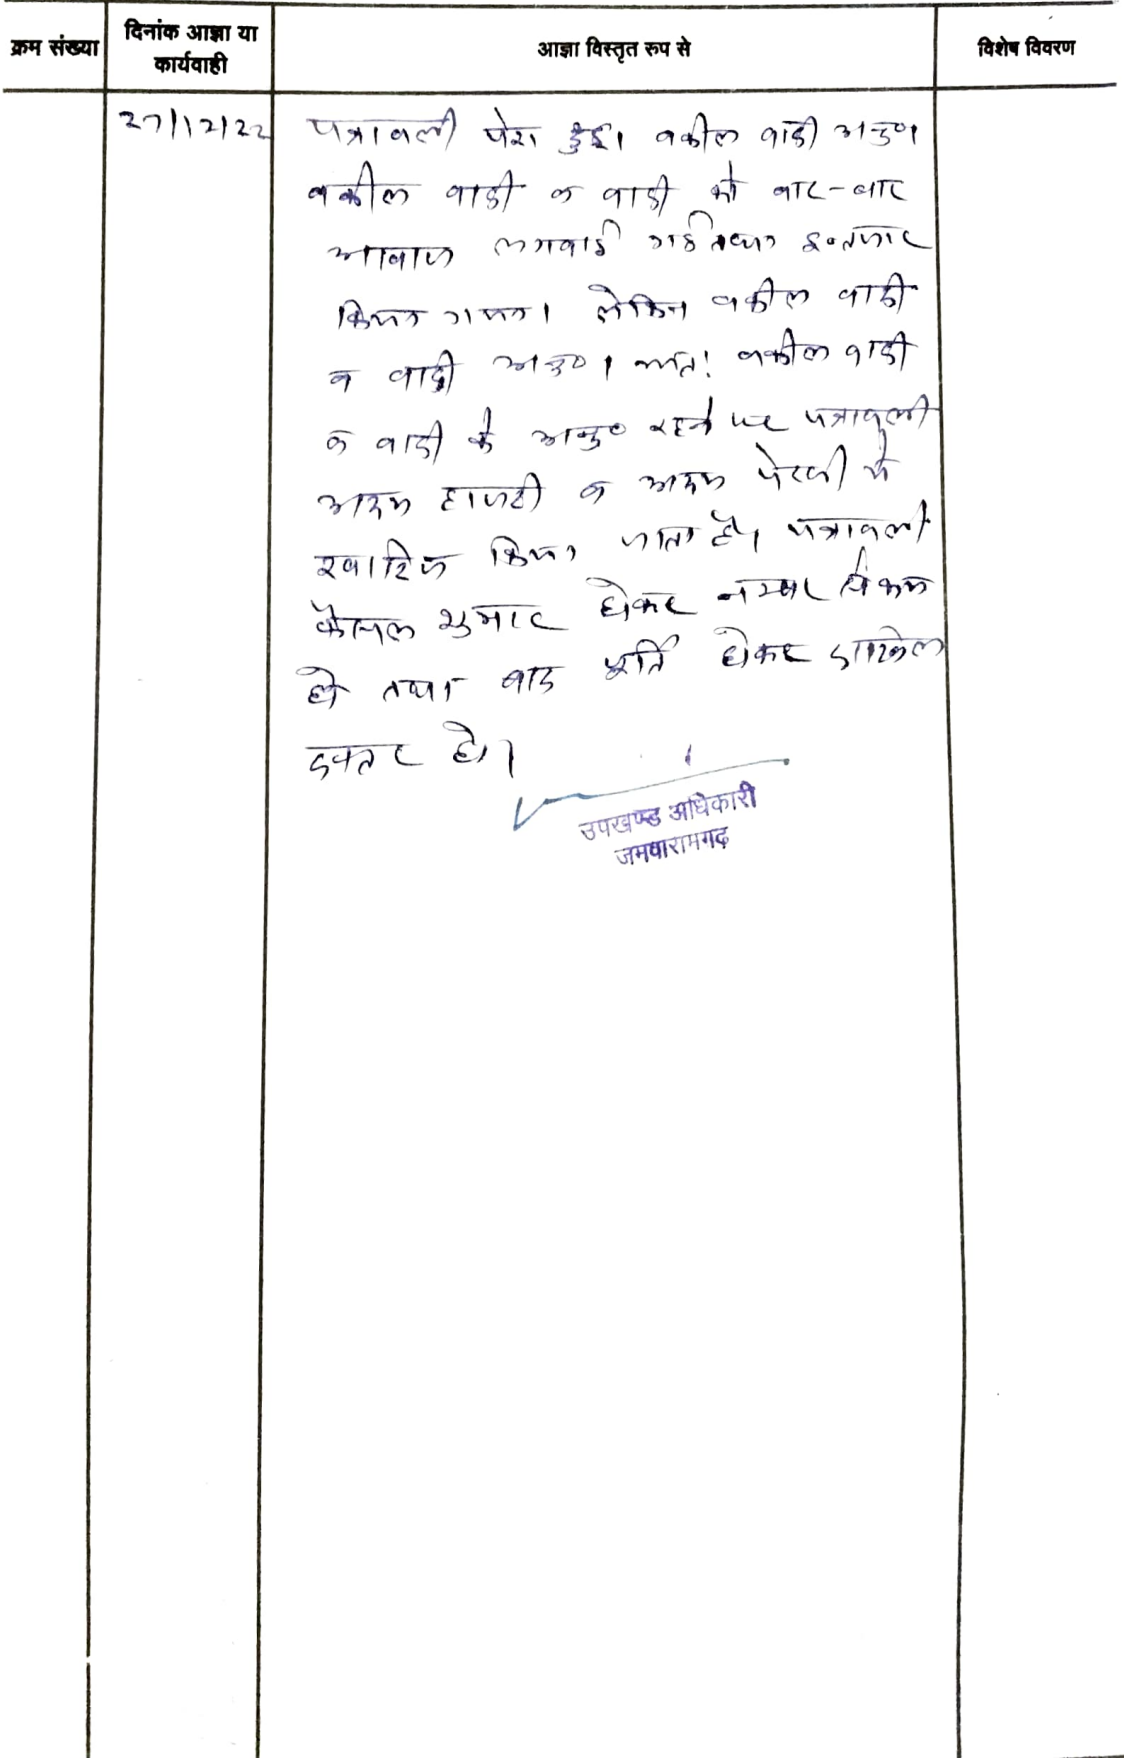 क्रम संख्या
दिनांक आज्ञा या
कार्यवाही
आज्ञा विस्तृत रुप से
विशेष विवरण
27/12/22
पत्रावली पेश हुई। वकील वादी अनु०।
वकील वादी व वादी को बार-बार
आवाज लगवाई गई तथा इन्तजार
किया गया। लेकिन वकील वादी
व वादी अनु०। अतः वकील वादी
व वादी के अनु० रहने पर पत्रावली
अदम हाजरी व अदम पेरवी में
खारिज किया जाता है। पत्रावली
फैसल शुमार होकर नम्बर से कम
हो तथा बाद पूर्ति होकर दाखिल
दफ्तर हो।
उपखण्ड अधिकारी
जमवारामगढ़